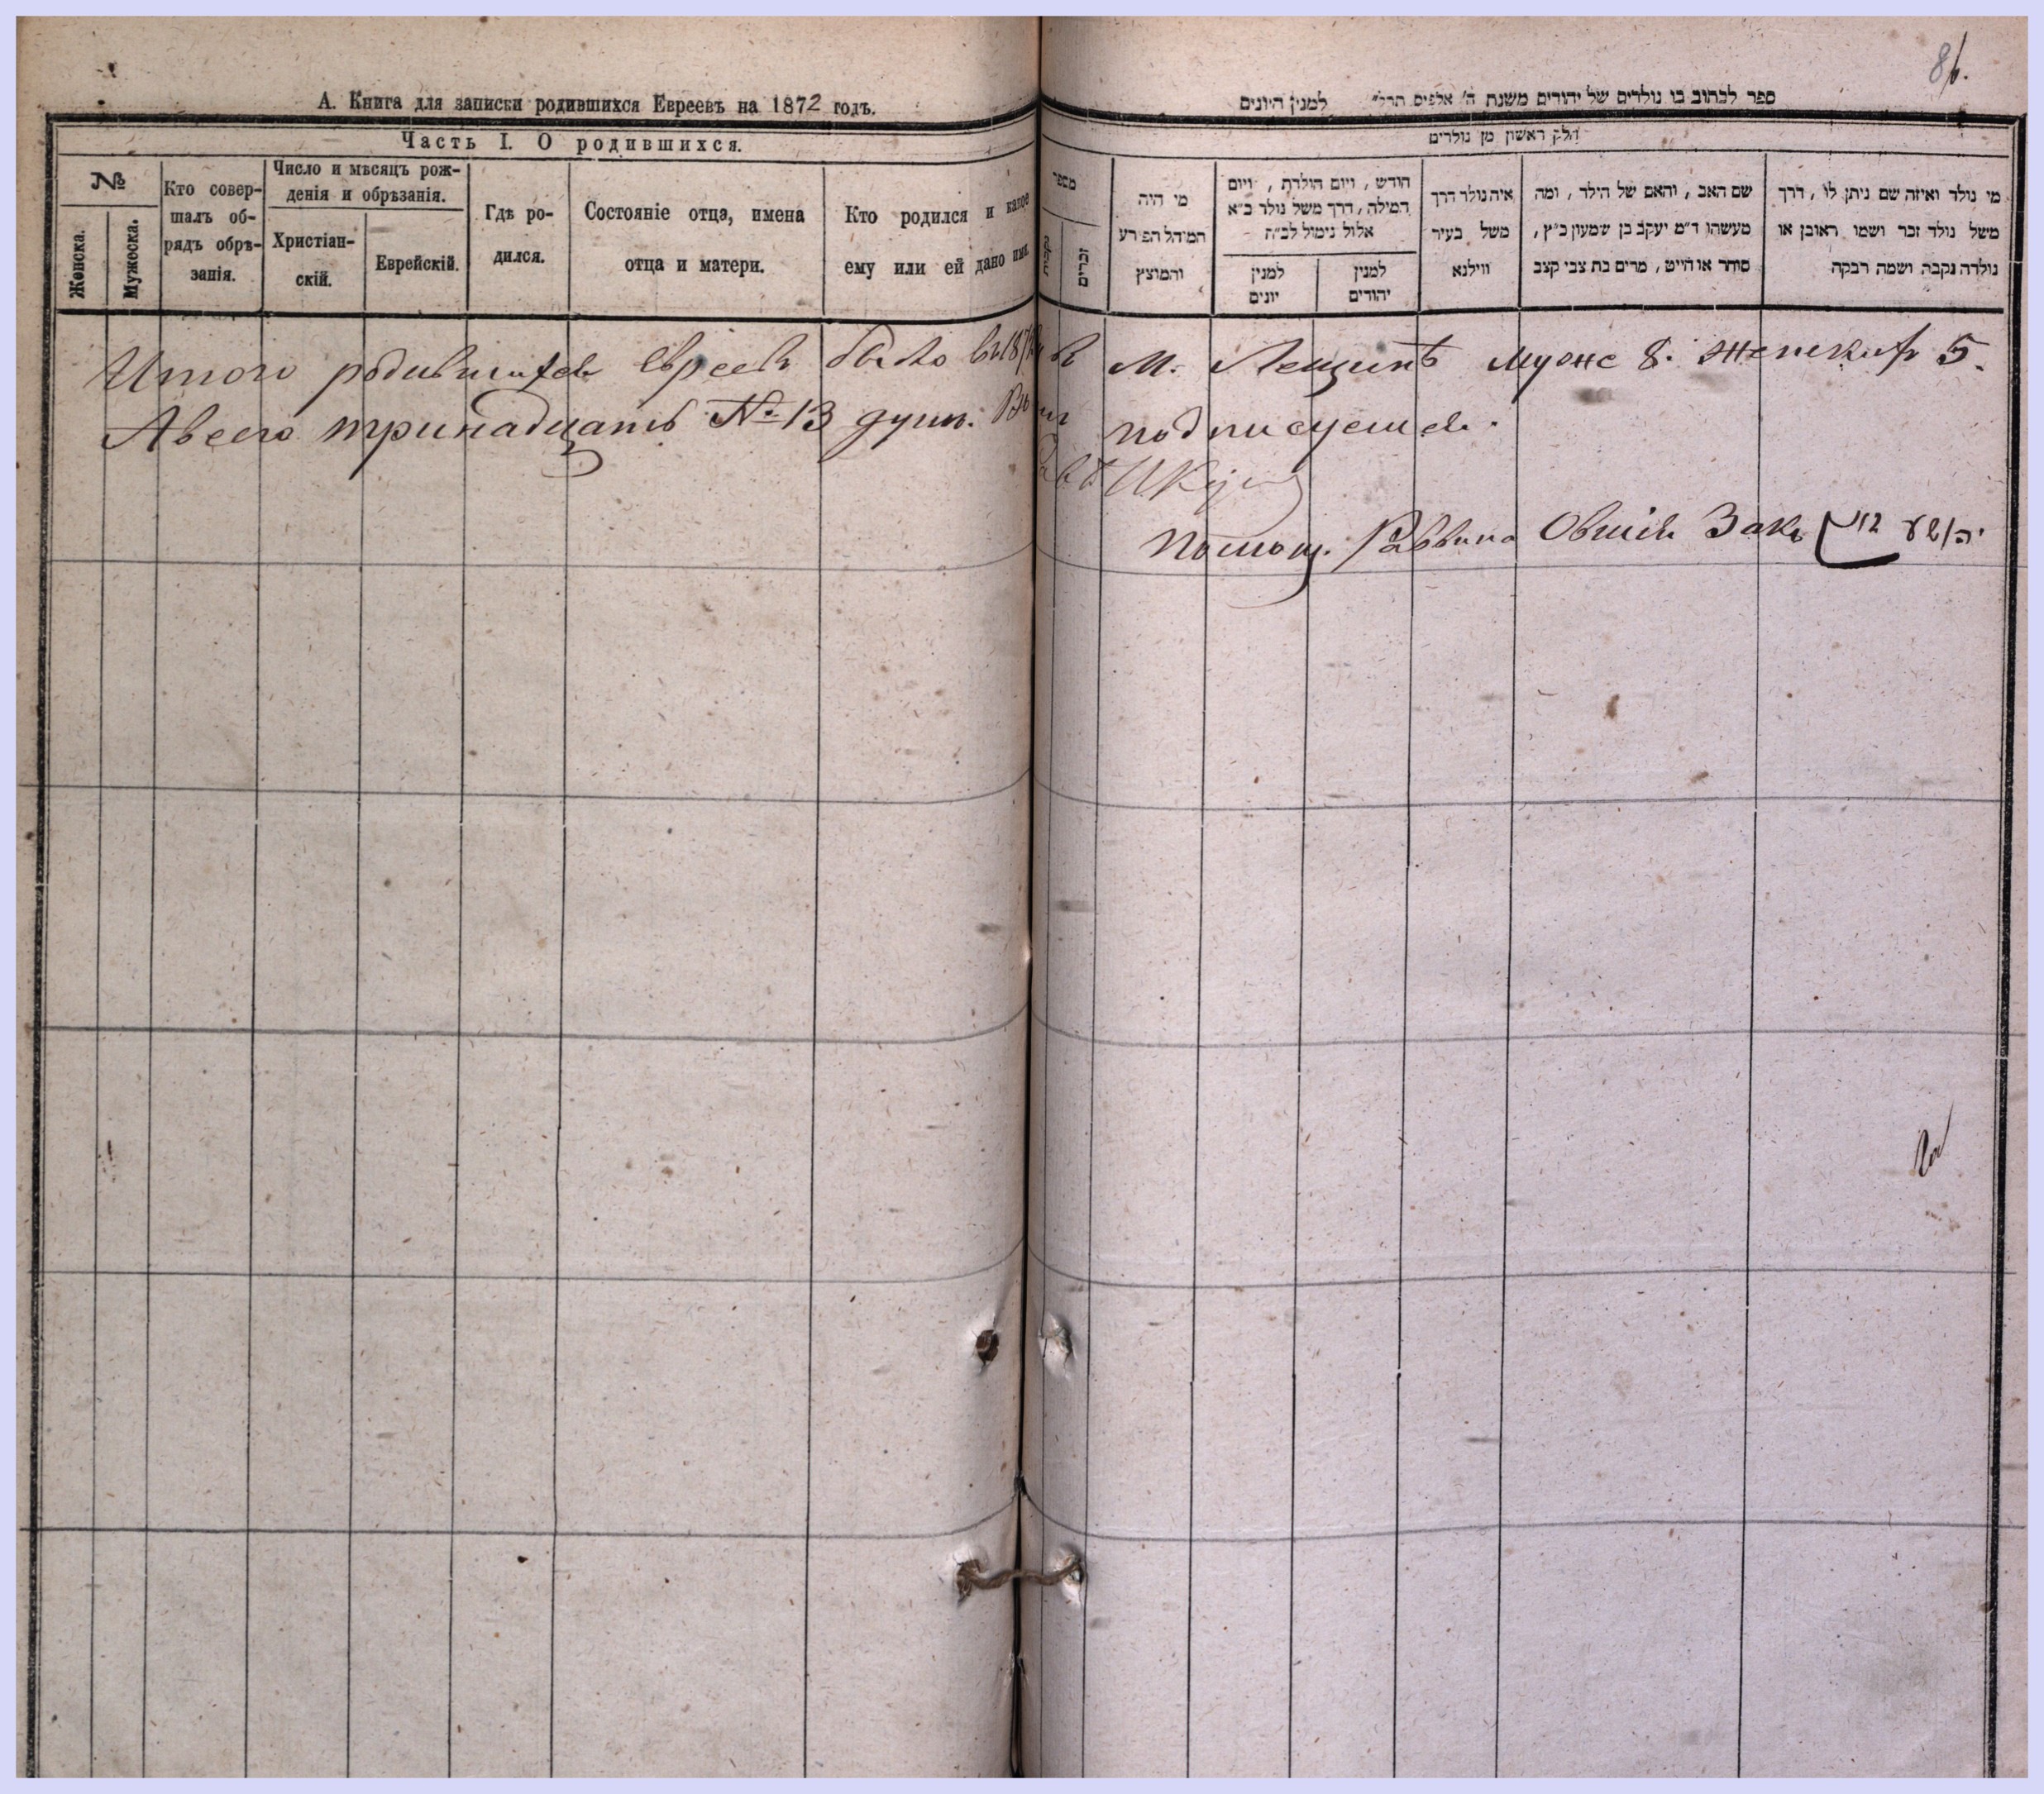 86.
А. Книга для записки родившихся Евреевъ на 1872 годъ.
Часть I. О родившихся.
№
Женска.
Мужеска.
Кто совер-
шалъ об-
рядъ обрѣ-
занія.
Число и мѣсяцъ рож-
денія и обрѣзанія.
Христіан-
скій.
Еврейскій.
Гдѣ ро-
дился.
Состояніе отца, имена
отца и матери.
Кто родился и какое
ему или ей дано имя.
ספר לכתוב בו נולדים של יהודים משנת ה' אלפים תרל" למנין היונים
חלק ראשון מן נולדים
מספר
נקבות
זכרים
מי היה
המוהל הפורע
והמוצץ
חודש, ויום הולדת, ויום
המילה, דרך משל נולד כ"א
אלול נימול לכ"ח
למנין
יונים
למנין
יהודים
איה נולד דרך
משל בעיר
ווילנא
שם האב, והאם של הילד, ומה
מעשהו ד"מ יעקב בן שמעון כ"ץ,
סוחר או חייט, מרים בת צבי קצב
מי נולד ואיזה שם ניתן לו, דרך
משל נולד זכר ושמו ראובן או
נולדה נקבה ושמה רבקה
Итого родившихся евреевъ было въ 1872 г. въ М. Лещинѣ Муже 8. Женскихъ 5.
А всего тринадцать № 13 душъ. подписуемся.
Помощ. Раввина Овшій Закъ יהושע זק